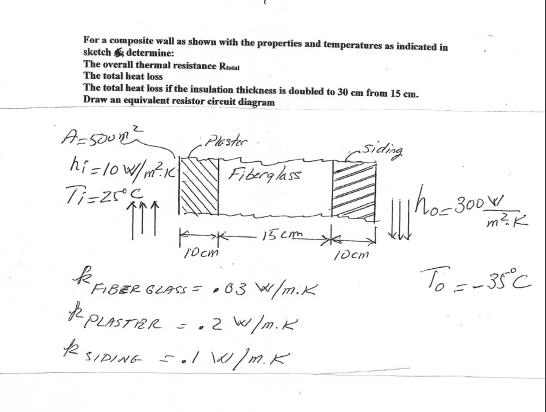 For a composite wall as shown with the properties and temperatures as indicated in
sketch determine:
The overall thermal resistance Rtotal
The total heat loss
The total heat loss if the insulation thickness is doubled to 30 cm from 15 cm.
Draw an equivalent resistor circuit diagram
A=500m²
Plaster
siding
hi=10 W/m².K
Fiberglass
Ti=25°C
ho=300 W/m².K
10cm
15 cm
10cm
To=-35°C
k FIBER GLASS = .03 W/m.K
k PLASTER = .2 W/m.K
k SIDING = .1 W/m.K